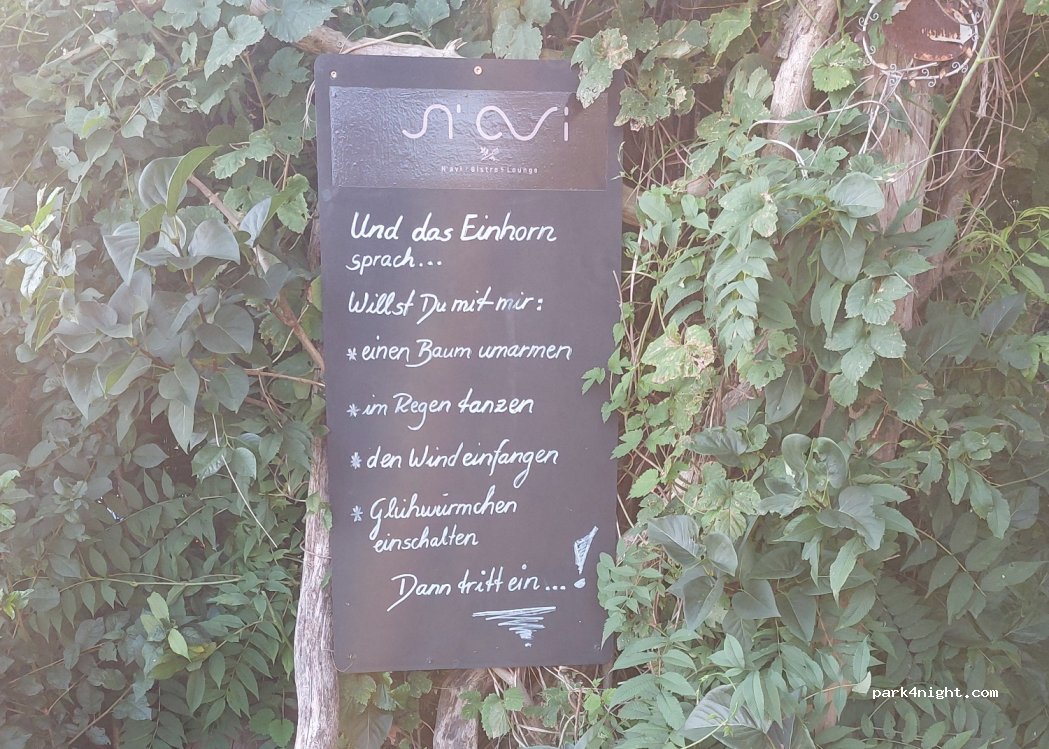 N'avi
N'avi · Bistro & Lounge
Und das Einhorn
sprach...
Willst Du mit mir:
* einen Baum umarmen
* im Regen tanzen
* den Wind einfangen
* Glühwürmchen
einschalten
Dann tritt ein...!
park4night.com